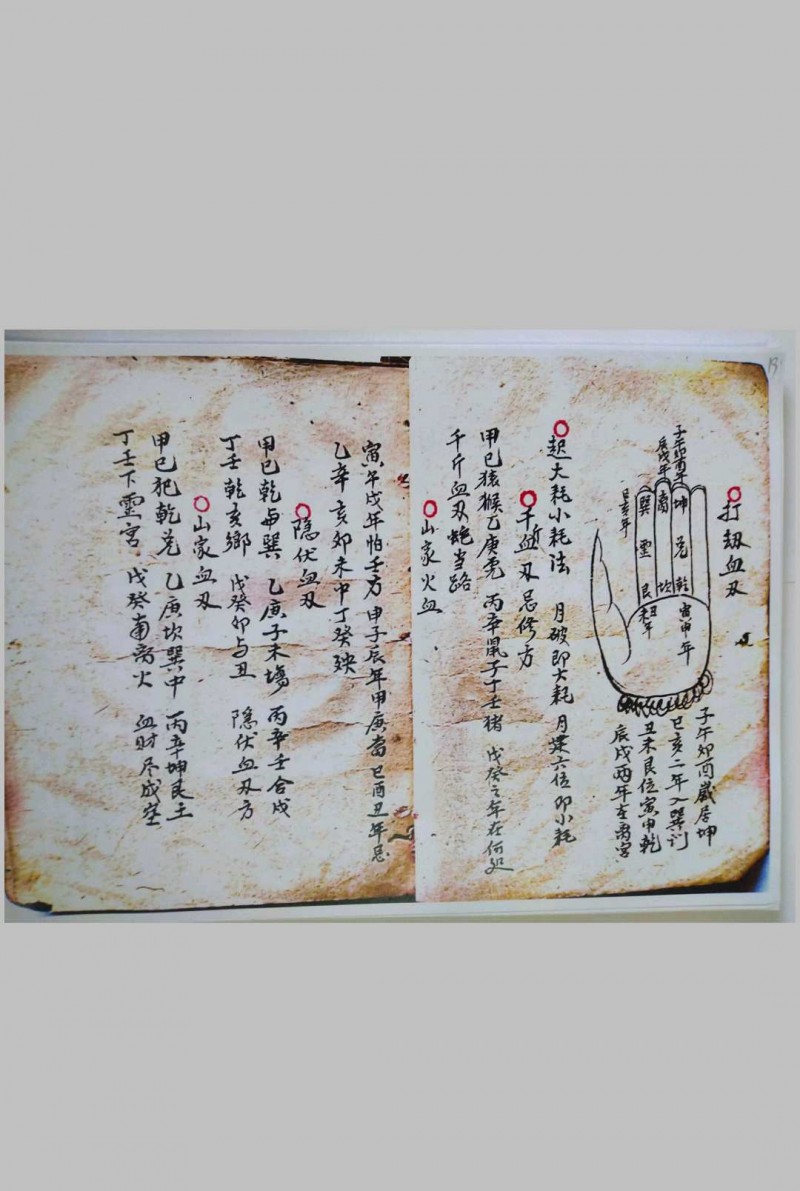 13
打劫血刃
子午卯酉歲居坤
巳亥二年入巽訓
丑未艮位寅申乾
辰戌两年在离宮
子午卯酉年
辰戌年
巳亥年
坤
离
巽
兑
震
乾
坎
艮
寅申年
丑未年
起大耗小耗法 月破即大耗 月建六位即小耗
千斤血刃忌修方
甲巳猿猴乙庚虎 丙辛鼠子丁壬猪 戊癸之年在何处
千斤血刃蛇当路
山家火血
寅午戌年怕壬方 申子辰年甲庚當 巳酉丑年忌
乙辛 亥卯未中丁癸殃
隐伏血刃
甲巳乾与巽 乙庚子未塲 丙辛壬合戍
丁壬乾亥鄉 戊癸卯与丑 隐伏血刃方
山家血刃
甲巳犯乾兑 乙庚坎巽中 丙辛坤艮土
丁壬下震宮 戊癸南离火 血财尽成空